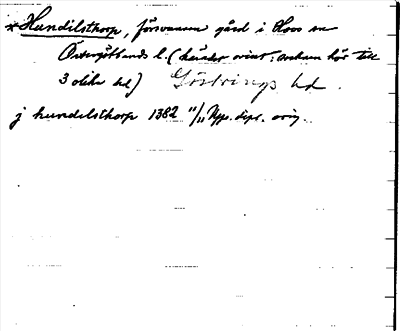 *Hundilsthorp, försvunnen gård i Hovs sn
Östergötlands l. (härader ovisst; socknen hör till
3 olika hd) Göstrings hd.
j hundilsthorp 1382 11/11 Upps. dipl. orig.